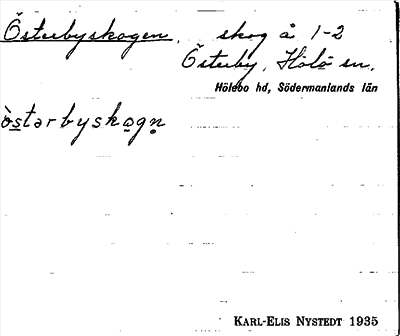 Österbyskogen, skog å 1-2
Österby, Hölö sn,
Hölebo hd, Södermanlands län
òstərbyskogn
KARL-ELIS NYSTEDT 1935